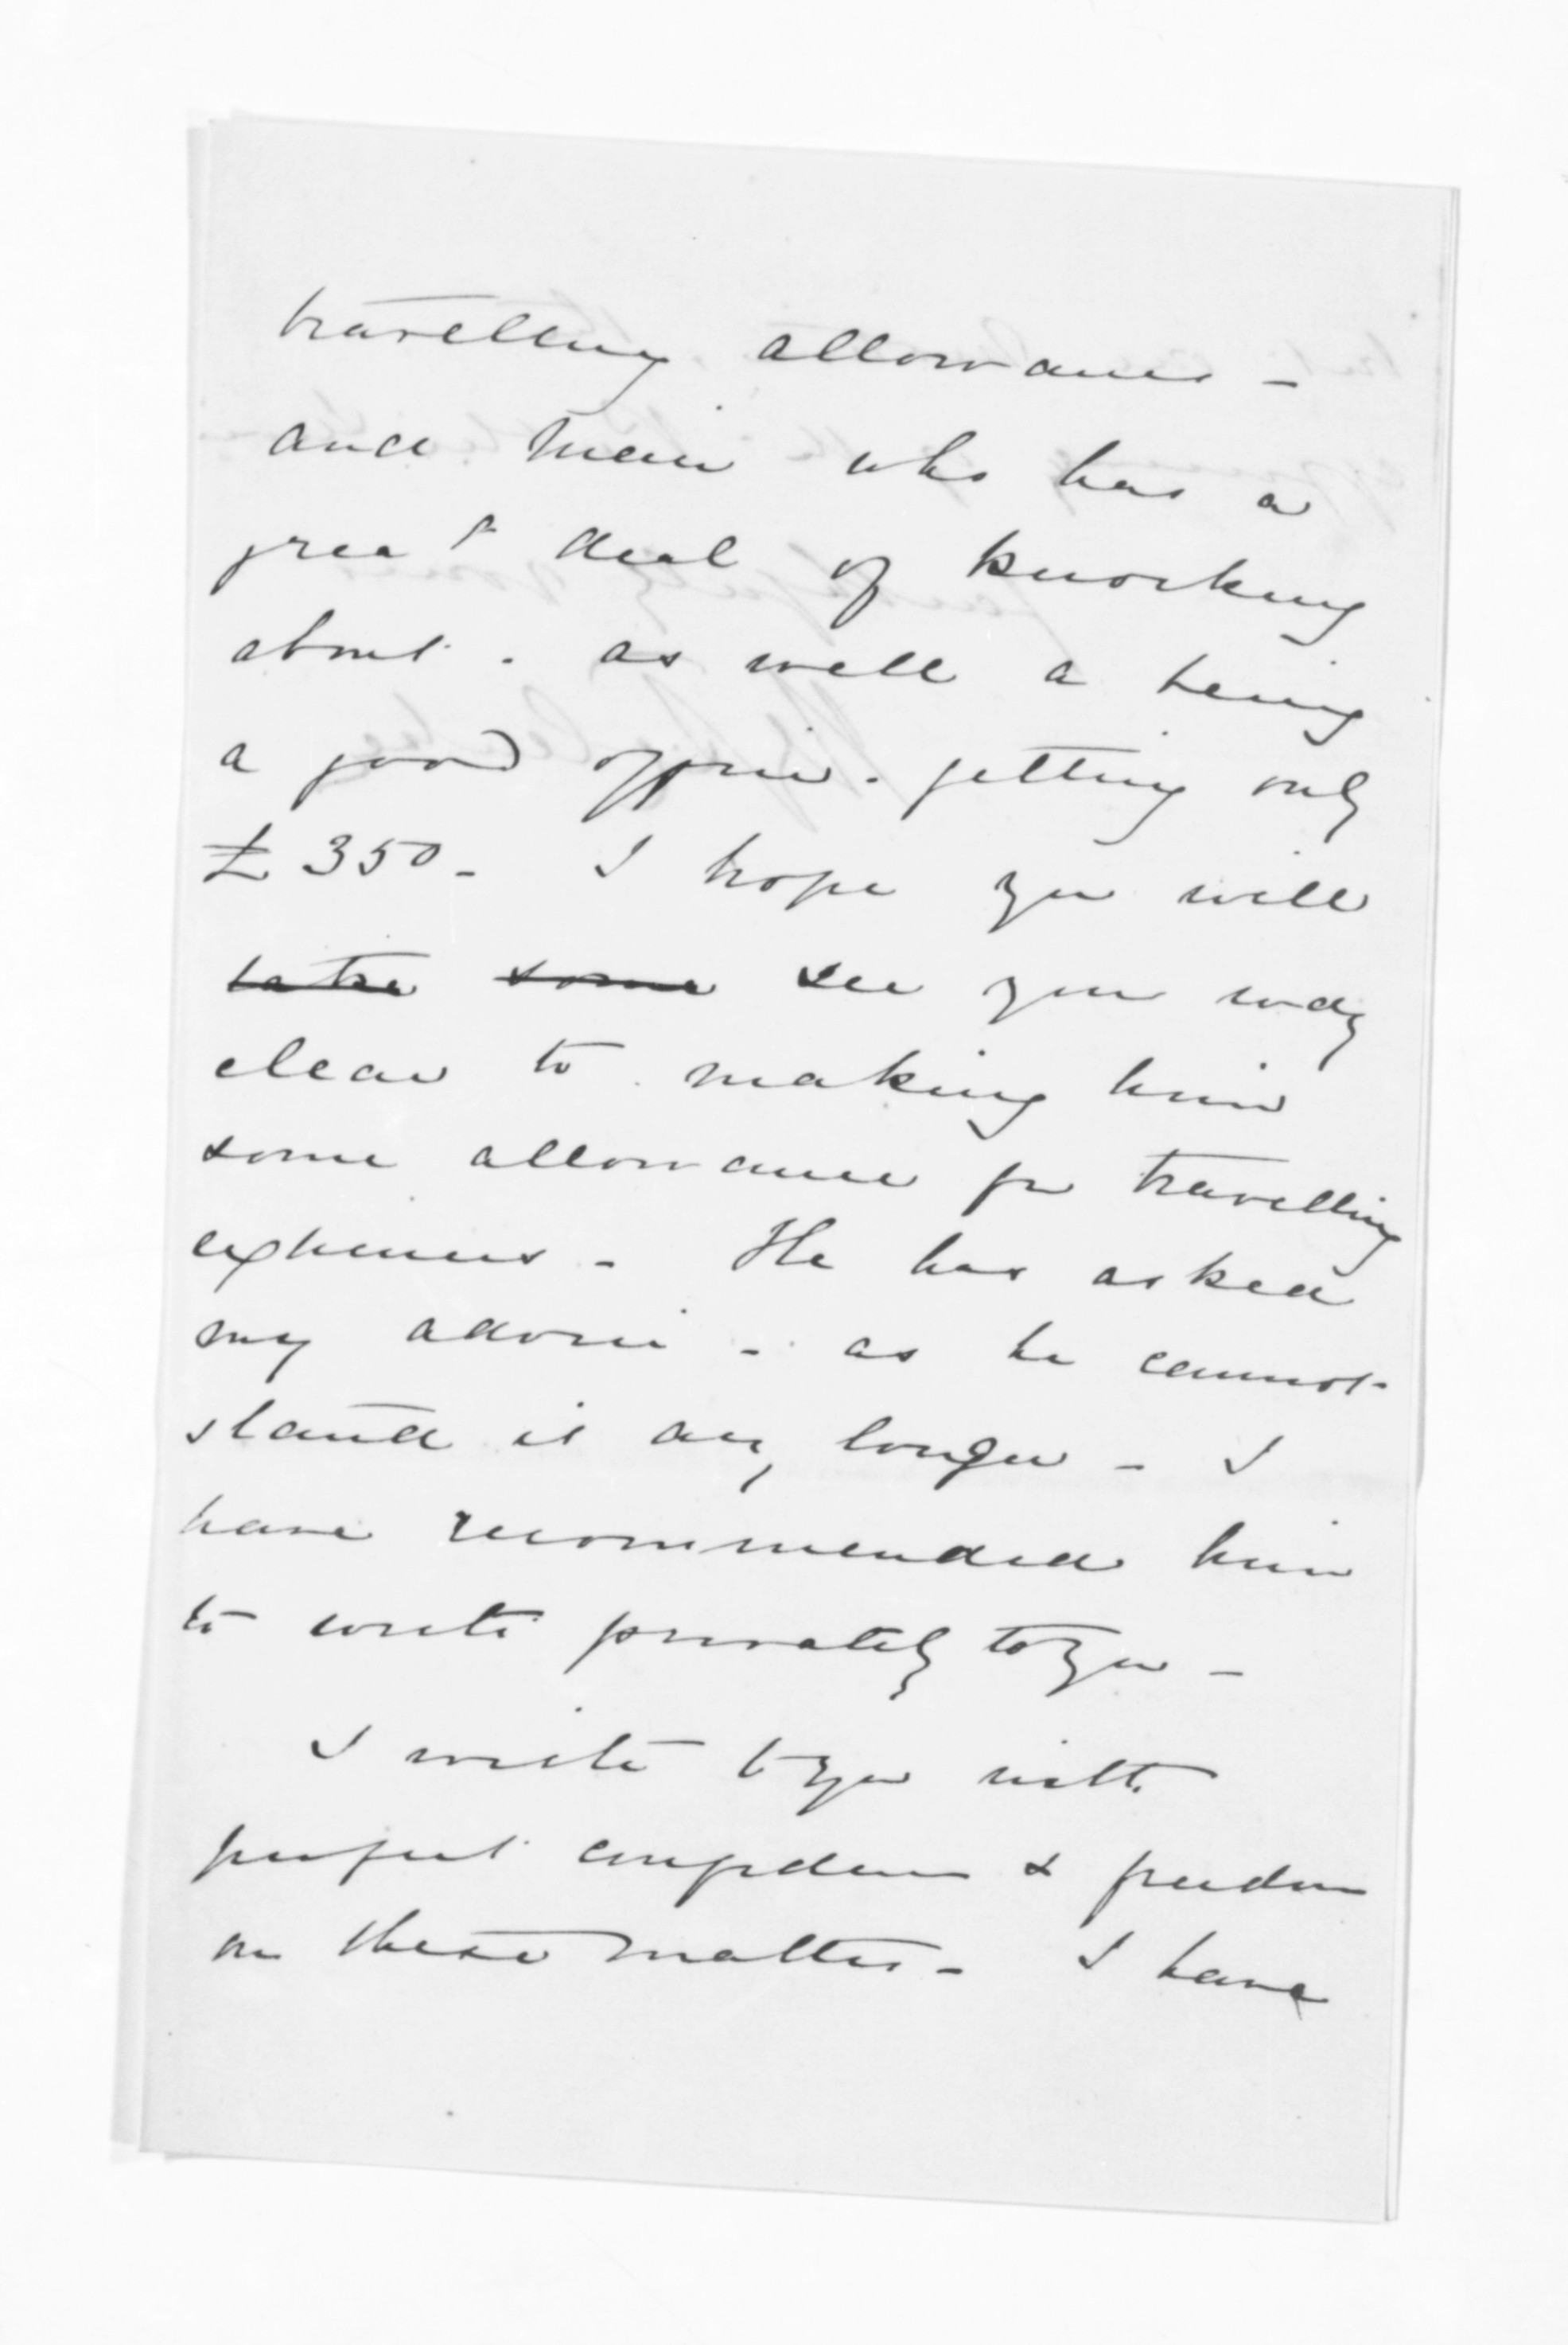 travelling allowance -
and Mair who has a
great deal of knocking
about. as well a being
a good officer. getting only
£350 - I hope you will
take some see your way
clear to making him
some allowance for travelling
expenses - He has asked
my advice - as he cannot
stand it any longer - I
have recommended him
to write privately to you -
I write to you with
perfect confidence & freedom
on these matters - I have